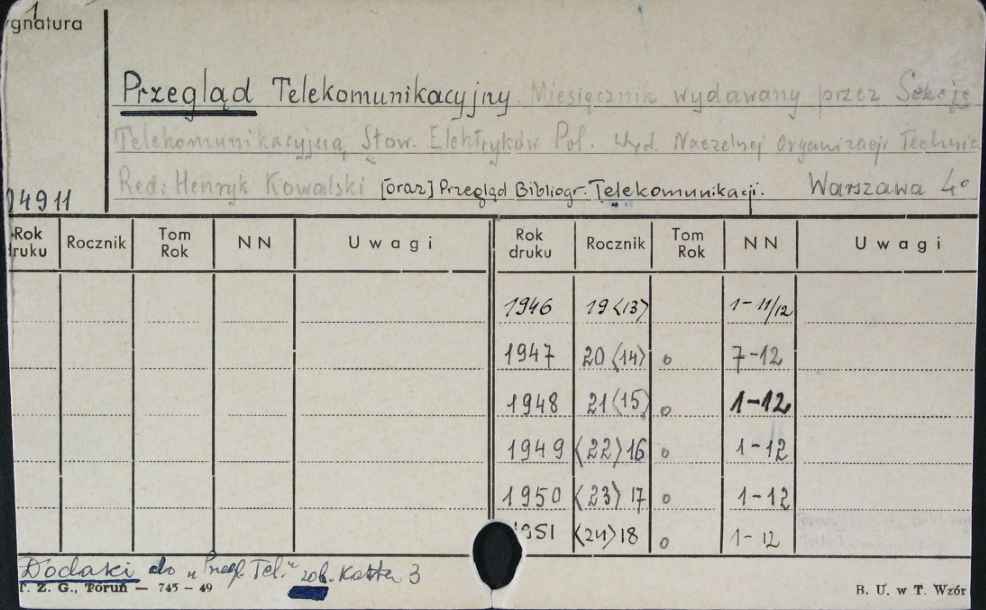 gnatura
Przegląd Telekomunikacyjny. Miesięcznik wydawany przez Sekcję
Telekomunikacyjną Stow. Elektryków Pol. Wyd. Naczelnej Organizacji Technic
Red: Henryk Kowalski [oraz] Przegląd Bibliogr. Telekomunikacji. Warszawa 4°
04911
Rok druku Rocznik Tom Rok NN Uwagi Rok druku Rocznik Tom Rok NN Uwagi
1946 19 <13> 1-11/12
1947 20 <14> o 7-12
1948 21 <15> o 1-12
1949 <22> 16 o 1-12
1950 <23> 17 o 1-12
1951 <24> 18 o 1-12
Dodatki do „Przegl. Tel." zob. Karta 3
T. Z. G., Toruń — 745 — 49 B. U. w T. Wzór